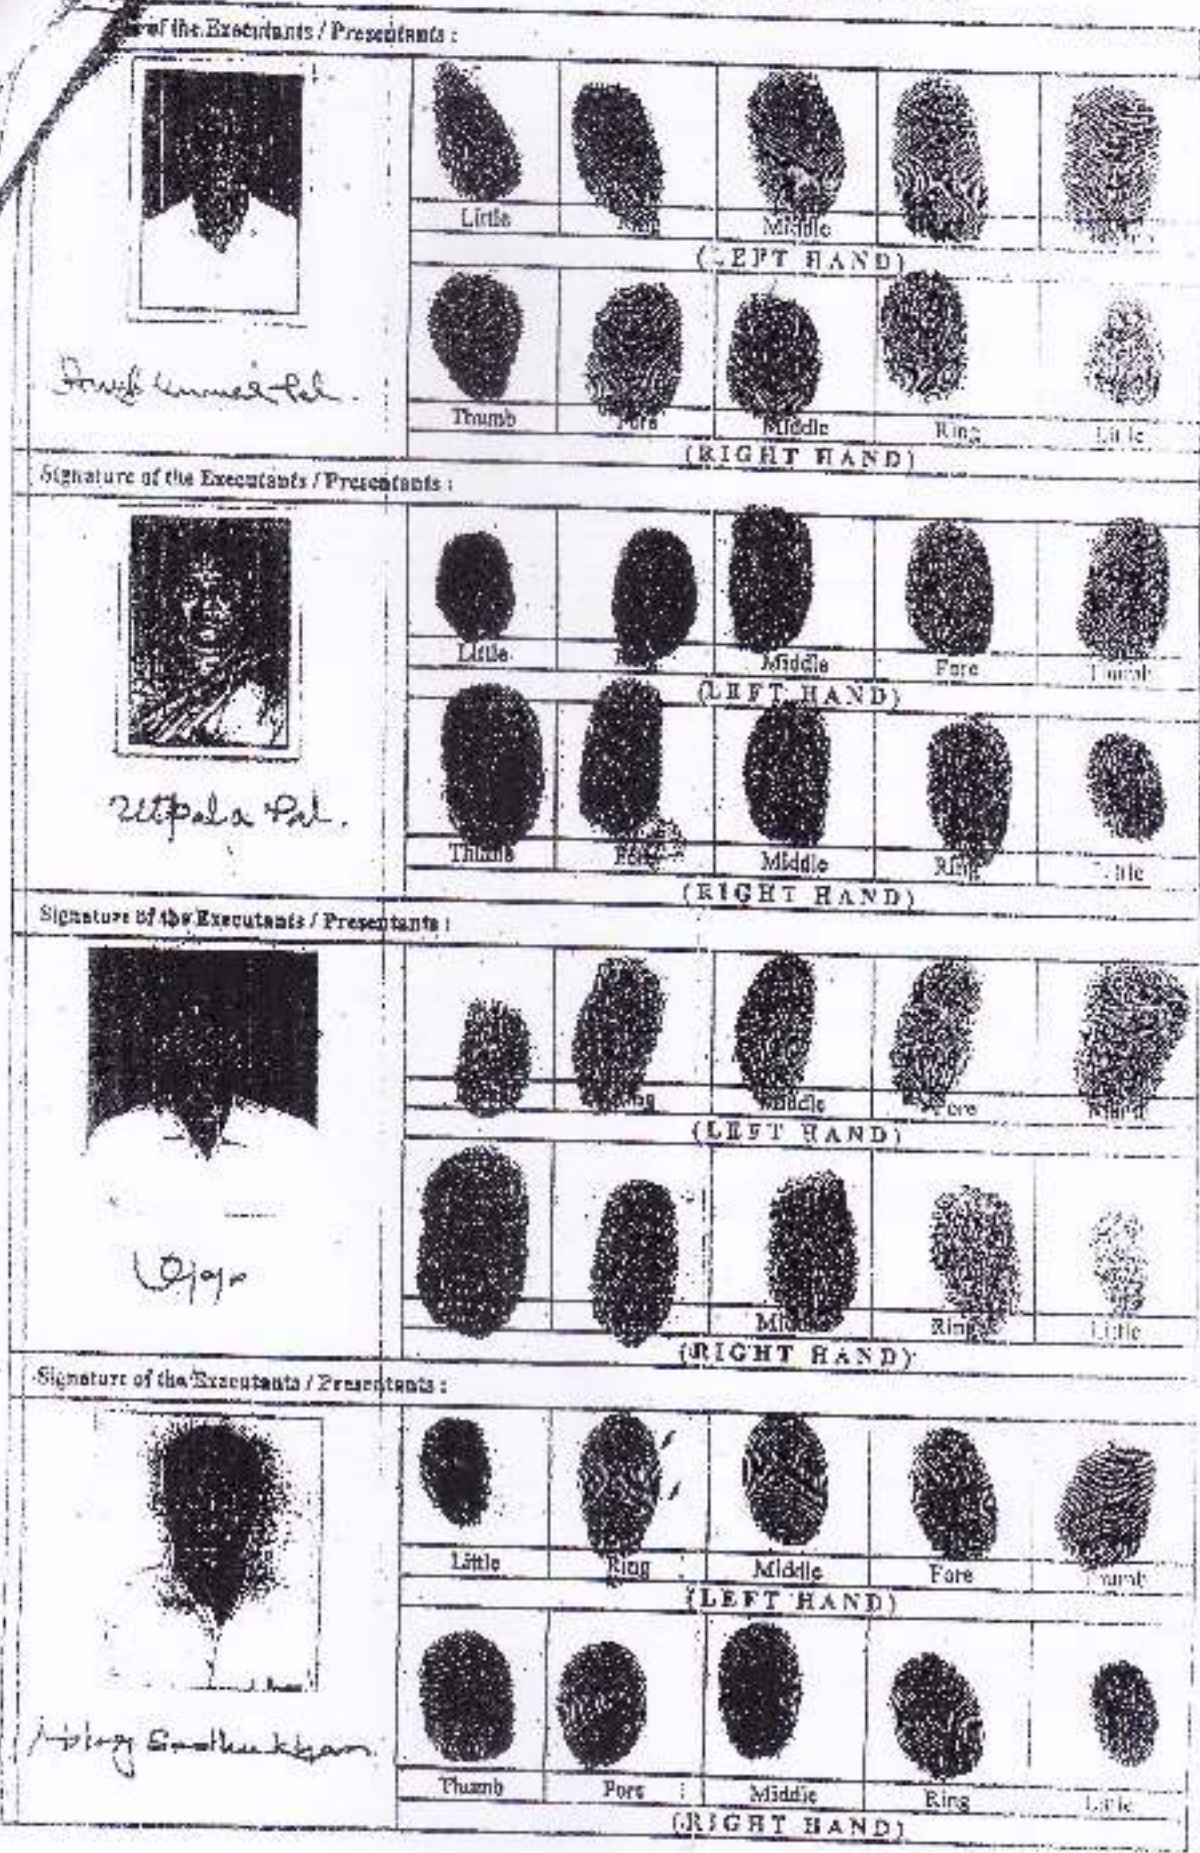 of the Executants / Presentants :
Little Ring Middle
(LEFT HAND)
Thumb Fore Middle Ring Little
(RIGHT HAND)
Signature of the Executants / Presentants :
Little Middle Fore Thumb
(LEFT HAND)
Utpala Pal.
Thumb Fore Middle Ring Little
(RIGHT HAND)
Signature of the Executants / Presentants :
Ring Middle Fore Thumb
(LEFT HAND)
Middle Ring Little
(RIGHT HAND)
Signature of the Executants / Presentants :
Little Ring Middle Fore Thumb
(LEFT HAND)
Sadhukhan
Thumb Fore Middle Ring Little
(RIGHT HAND)